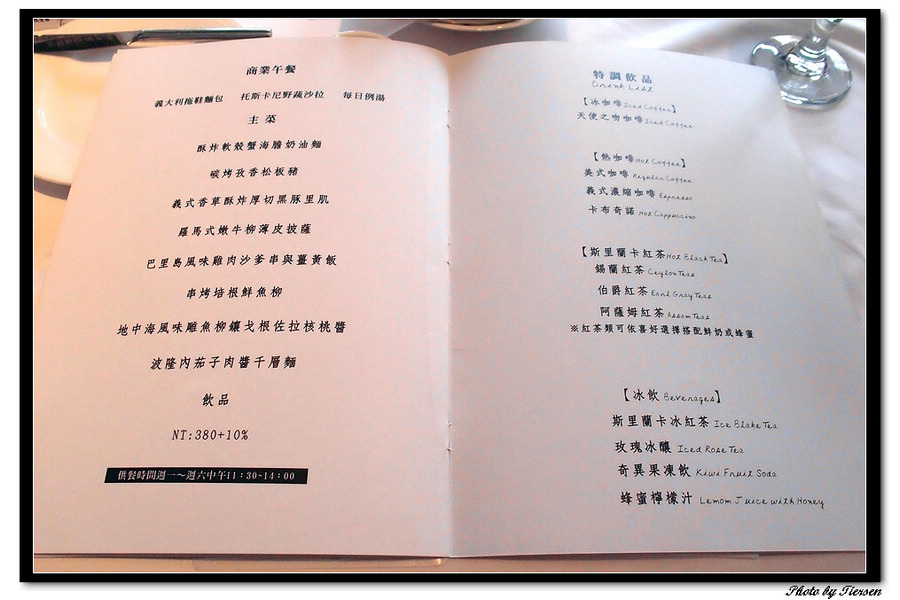 商業午餐
義大利拖鞋麵包 托斯卡尼野蔬沙拉 每日例湯
主菜
酥炸軟殼蟹海膽奶油麵
碳烤孜香松板豬
義式香草酥炸厚切黑豚里肌
羅馬式嫩牛柳薄皮披薩
巴里島風味雞肉沙爹串與薑黃飯
串烤培根鮮魚柳
地中海風味雕魚柳鑲戈根佐拉核桃醬
波隆內茄子肉醬千層麵
飲品
NT:380+10%
供餐時間週一～週六中午11：30~14：00
特調飲品
Drink List
【冰咖啡Iced Coffee】
天使之吻咖啡Iced Coffee
【熱咖啡Hot Coffee】
美式咖啡 Regular Coffee
義式濃縮咖啡 Espresso
卡布奇諾 Hot Cappuccino
【斯里蘭卡紅茶Hot Black Tea】
錫蘭紅茶 Ceylon Teas
伯爵紅茶 Earl Gray Teas
阿薩姆紅茶 Assam Teas
※紅茶類可依喜好選擇搭配鮮奶或蜂蜜
【冰飲 Beverages】
斯里蘭卡冰紅茶 Ice Blake Tea
玫瑰冰釀 Iced Rose Tea
奇異果凍飲 Kiwi Fruit Soda
蜂蜜檸檬汁 Lemom Juice with Honey
Photo by Tiersen